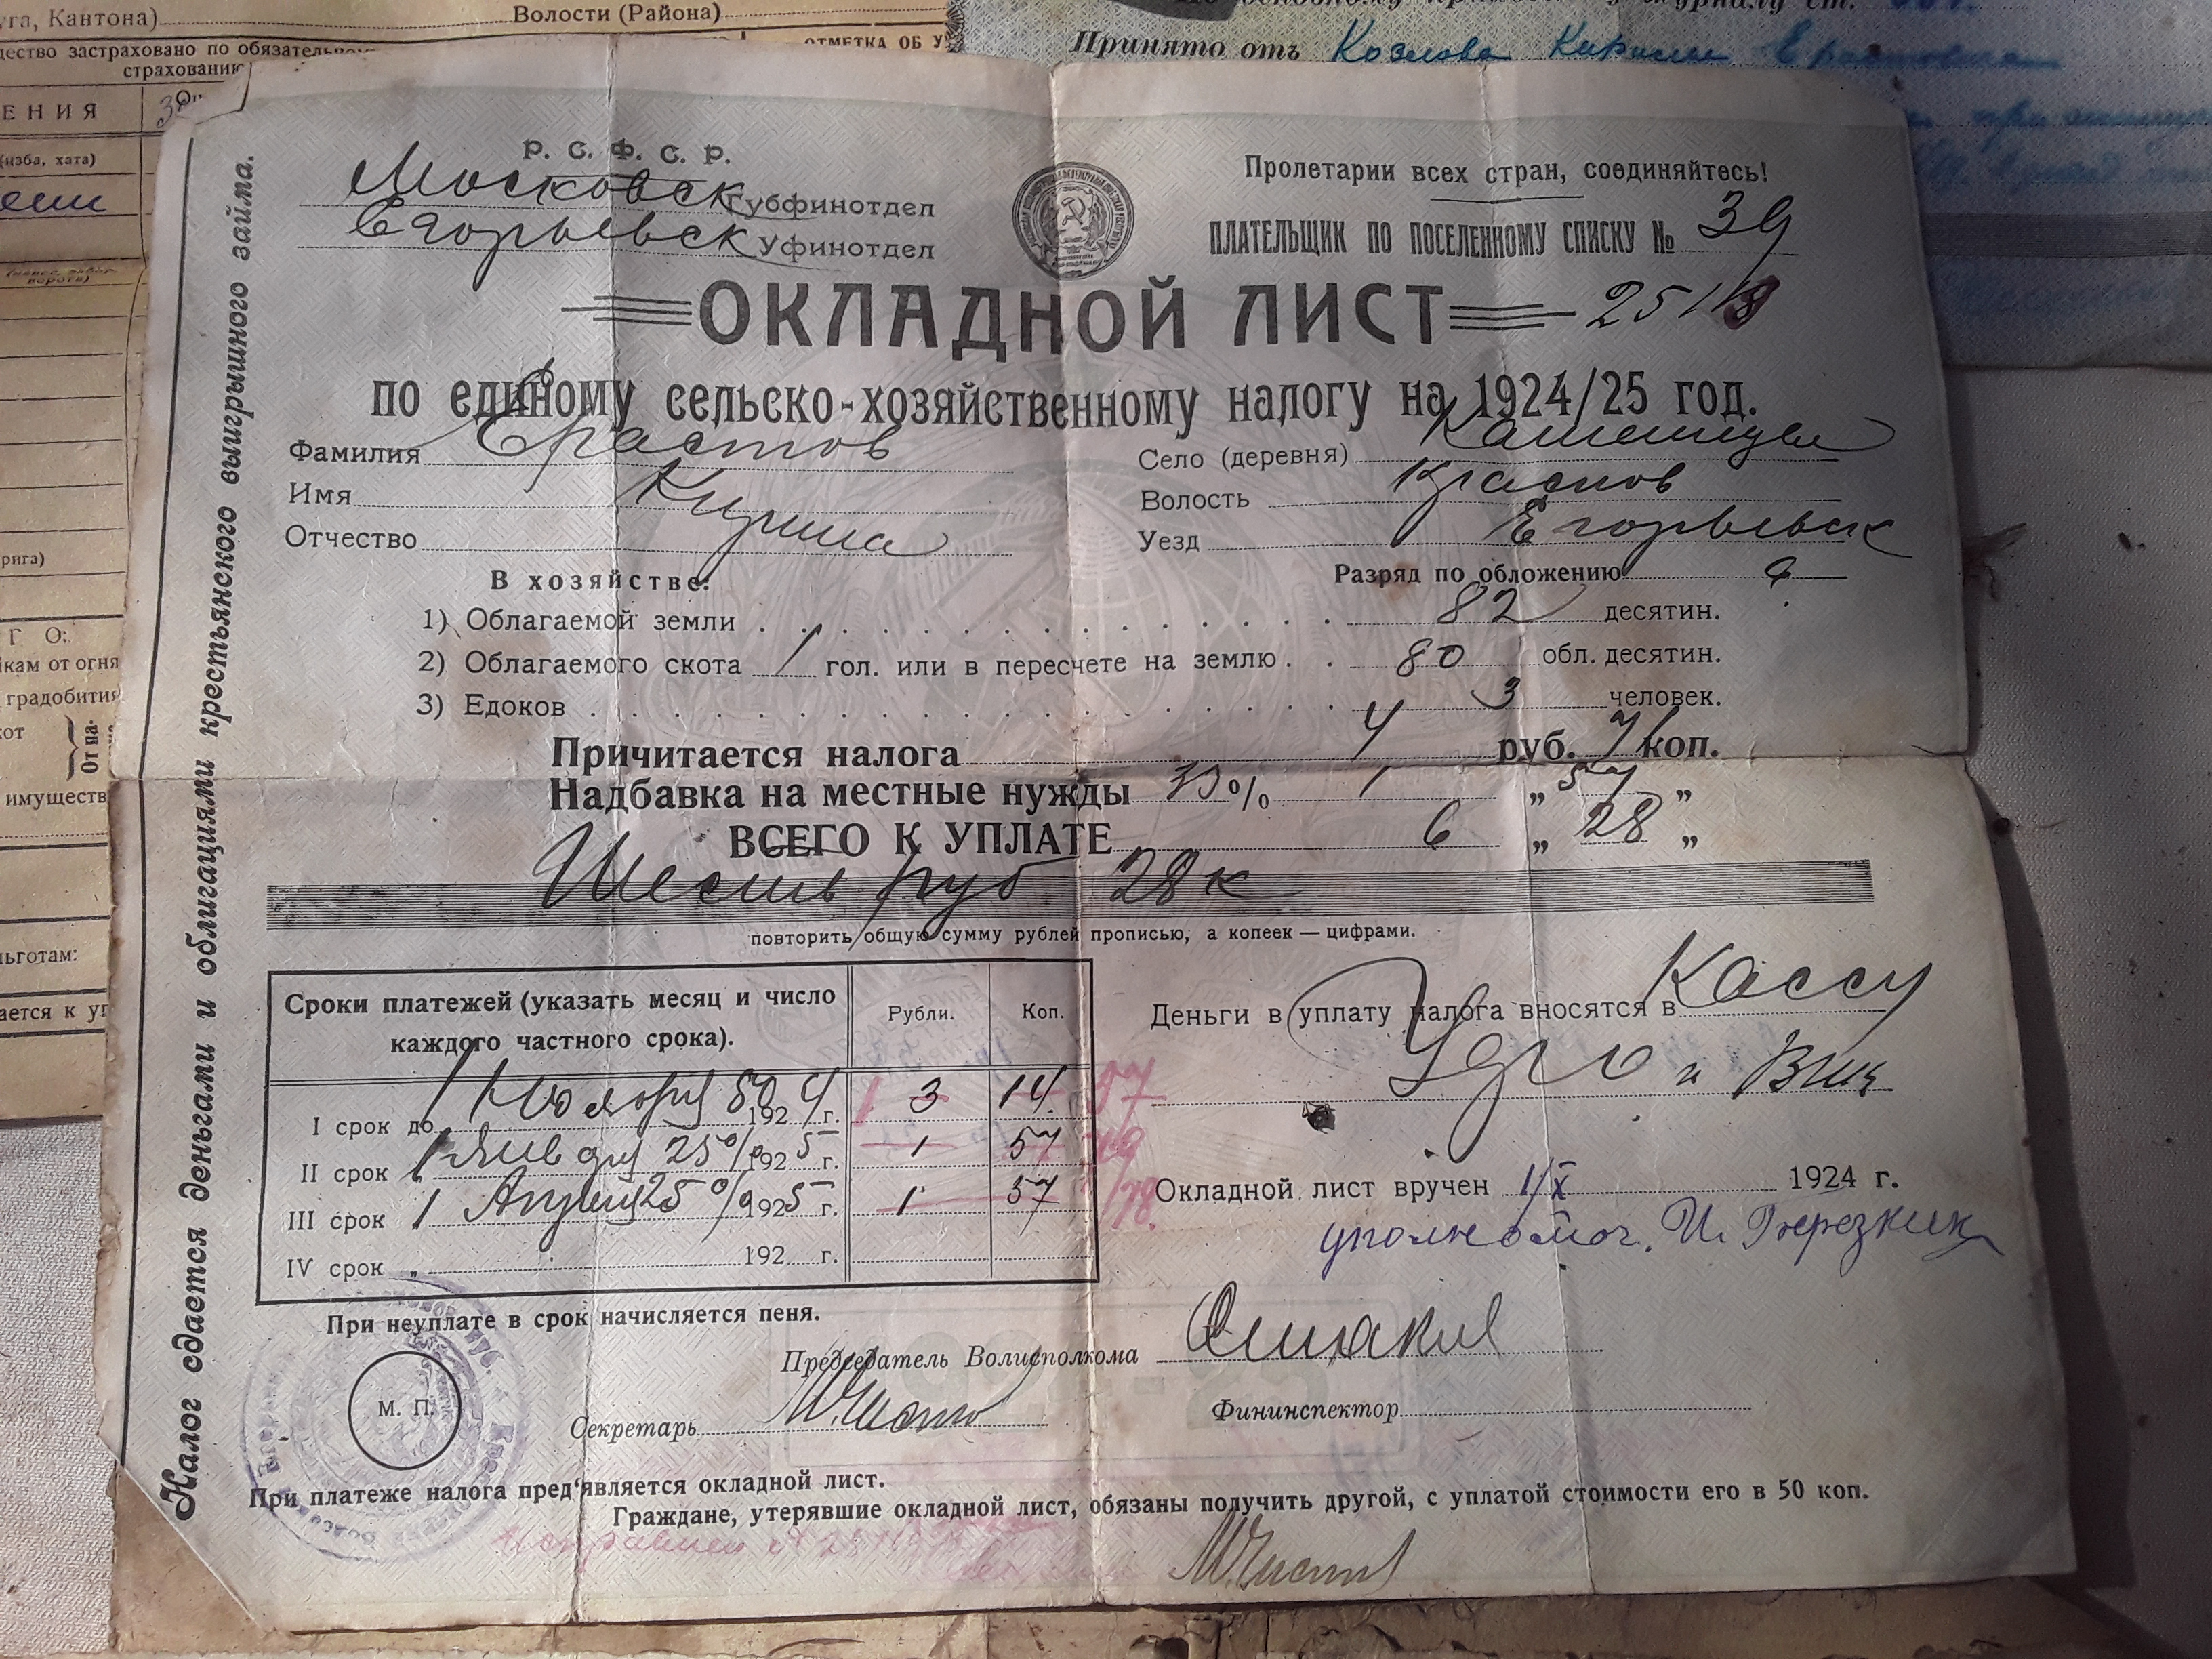 уга, Кантона)
Волости (Района)
щество застраховано по обязательном
страхованию
ОТМЕТКА ОБ У
ЕНИЯ
(изба, хата)
рига)
Г О:
йкам от огня
градобития
кот
От па-
имуществ
льготам:
ается к уп
Принято отъ Козлова
Налог сдается деньгами и облигациями крестьянского выигрышного займа.
Р. С. Ф. С. Р.
Московск Губфинотдел
Егорьевск Уфинотдел
Пролетарии всех стран, соединяйтесь!
ПЛАТЕЛЬЩИК ПО ПОСЕЛЕННОМУ СПИСКУ № 39
ОКЛАДНОЙ ЛИСТ
по единому сельско-хозяйственному налогу на 1924/25 год.
Фамилия Ерастов
Имя Кирила
Отчество
Село (деревня)
Волость Краснов
Уезд Егорьевск
Разряд по обложению
В хозяйстве:
1) Облагаемой земли 82 десятин.
2) Облагаемого скота 1 гол. или в пересчете на землю 80 обл. десятин.
3) Едоков 3 человек.
Причитается налога 4 руб. 71 коп.
Надбавка на местные нужды % 1 „ 57 „
ВСЕГО К УПЛАТЕ 6 „ 28 „
Шесть руб 28 к
повторить общую сумму рублей прописью, а копеек — цифрами.
Сроки платежей (указать месяц и число каждого частного срока).
Рубли.
Коп.
I срок до 1 Ноября 50 1924 г. 3 14
II срок 1 Января 25% 1925 г. 1 57
III срок 1 Апреля 25% 1925 г. 1 57
IV срок „ 192 г.
При неуплате в срок начисляется пеня.
Деньги в уплату налога вносятся в Кассу
и Вик
Окладной лист вручен 1/X 1924 г.
уполномоч. И.
М. П.
Председатель Волисполкома
Секретарь
Фининспектор
При платеже налога пред'является окладной лист.
Граждане, утерявшие окладной лист, обязаны получить другой, с уплатой стоимости его в 50 коп.